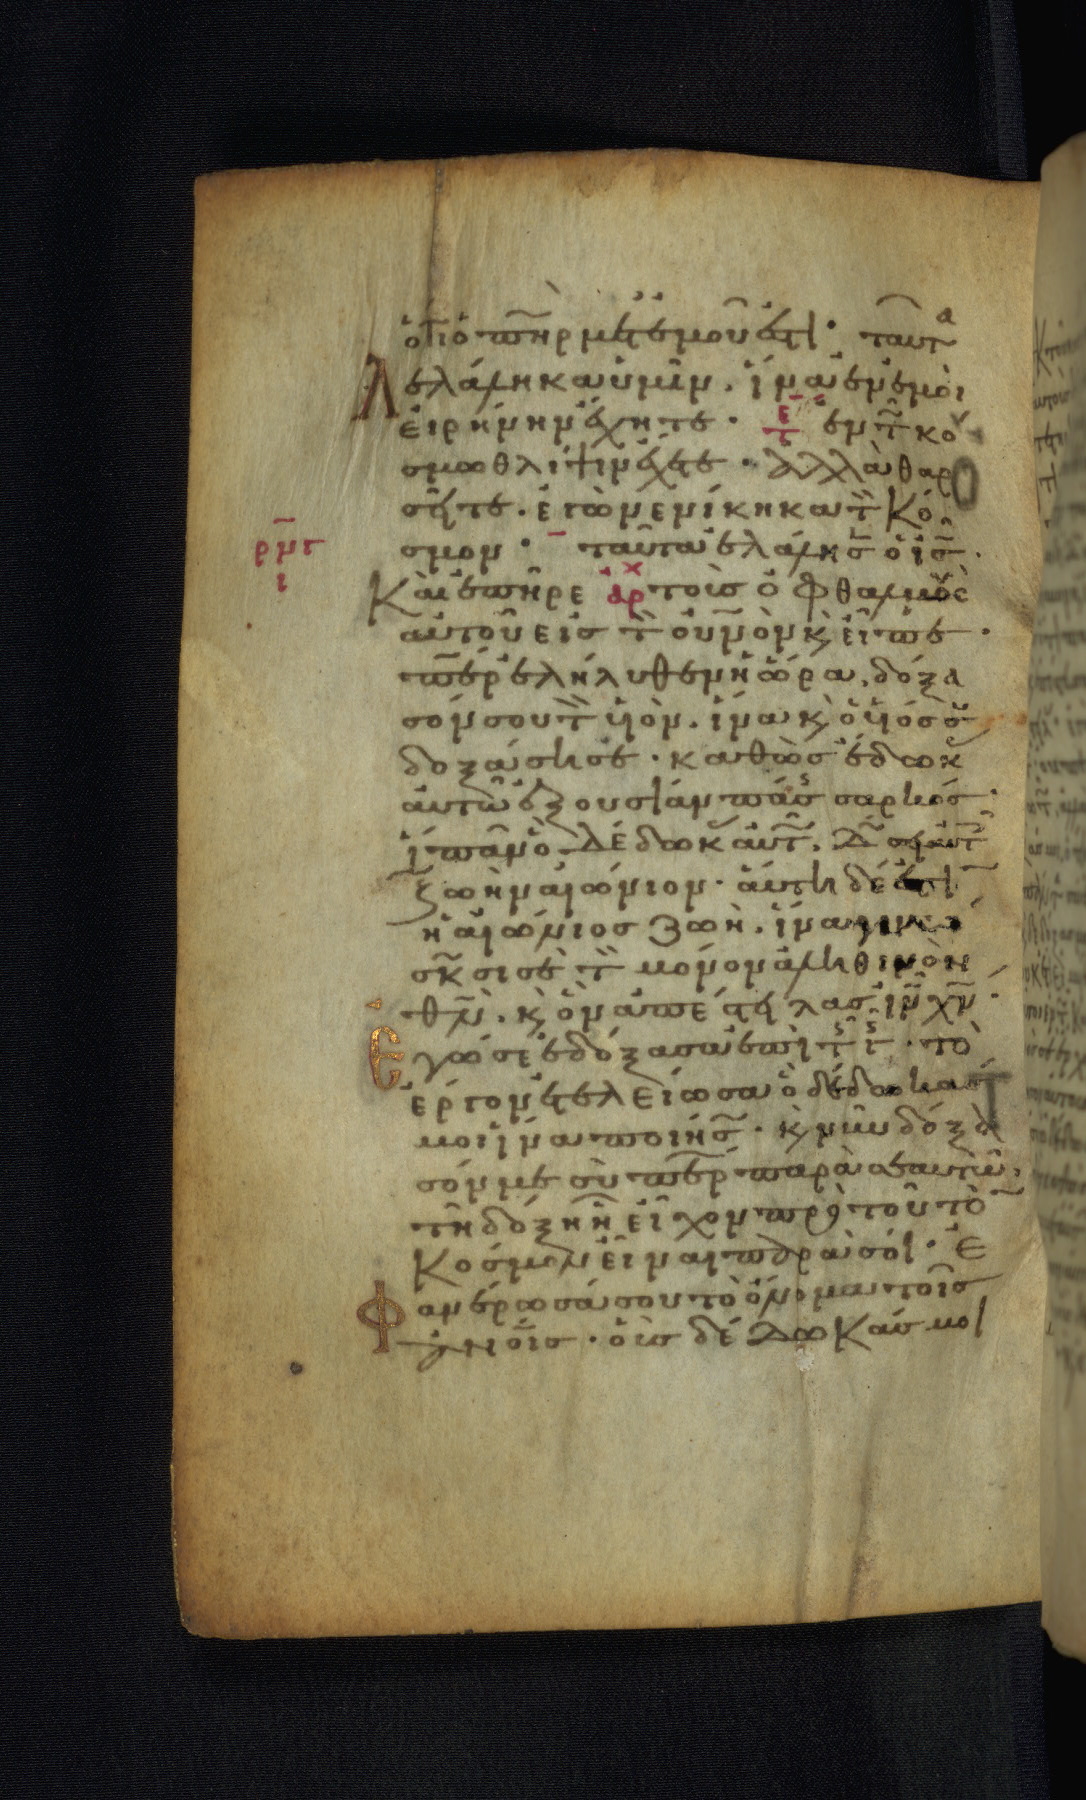 ὅτι ὁ πηρ μετ ἐμοῦ ἐστι · ταῦτα
λελάληκα ὑμῖν . ἵνα ἐν ἐμοὶ
εἰρήνην ἔχητε · τε ἐν τ κο
σμω θλίψιν ἔχετε · ἀλλὰ θαρ
σεῖτε . ἐγὼ νενίκηκα τ κό
σμον · ταῦτα ἐλάλησ ὁ ισ .
Καὶ ἐπῆρε αρχ τοὺς ὀφθαλμοὺς
αὐτοῦ εἰς τ οὐνὸν κ εἶπε ·
περ ἐλήλυθεν ἡ ὥρα . δόξα
σόν σου τ υἱόν . ἵνα κ ὁ υἱός σ
δοξάσῃ σε · καθὼς ἔδωκ
αὐτῶ ἐξουσίαν πάσ σαρκός ·
ἵν πᾶν ὃ δέδωκ αὐτ . δ σει αὐτ
ζωὴν αἰώνιον · αὕτη δέ ἐστι
ἡ αἰώνιος ζωὴ . ἵνα γινω
σκ σι σὲ τ μόνον ἀληθινὸν
θν . κ ὃν ἀπέστειλας ιν χν ·
Ἐγώ σε ἐδόξασα ἐπὶ τ γ · τὸ
ἔργον ἐτελείωσα ὃ δέδωκάσ
μοι ἵνα ποιήσ · κ νῦν δόξα
σόν με σὺ περ παρὰ σεαυτῶ .
τῇ δόξῃ ᾗ εἶχον πρὸ τοῦ τὸ
κόσμον εἶναι παρὰ σοί · Ἐ
φανέρωσά σου τὸ ὄνομα τοῖς
ἀνοις · οὓς δέδωκάς μοι
ρμγ
ι